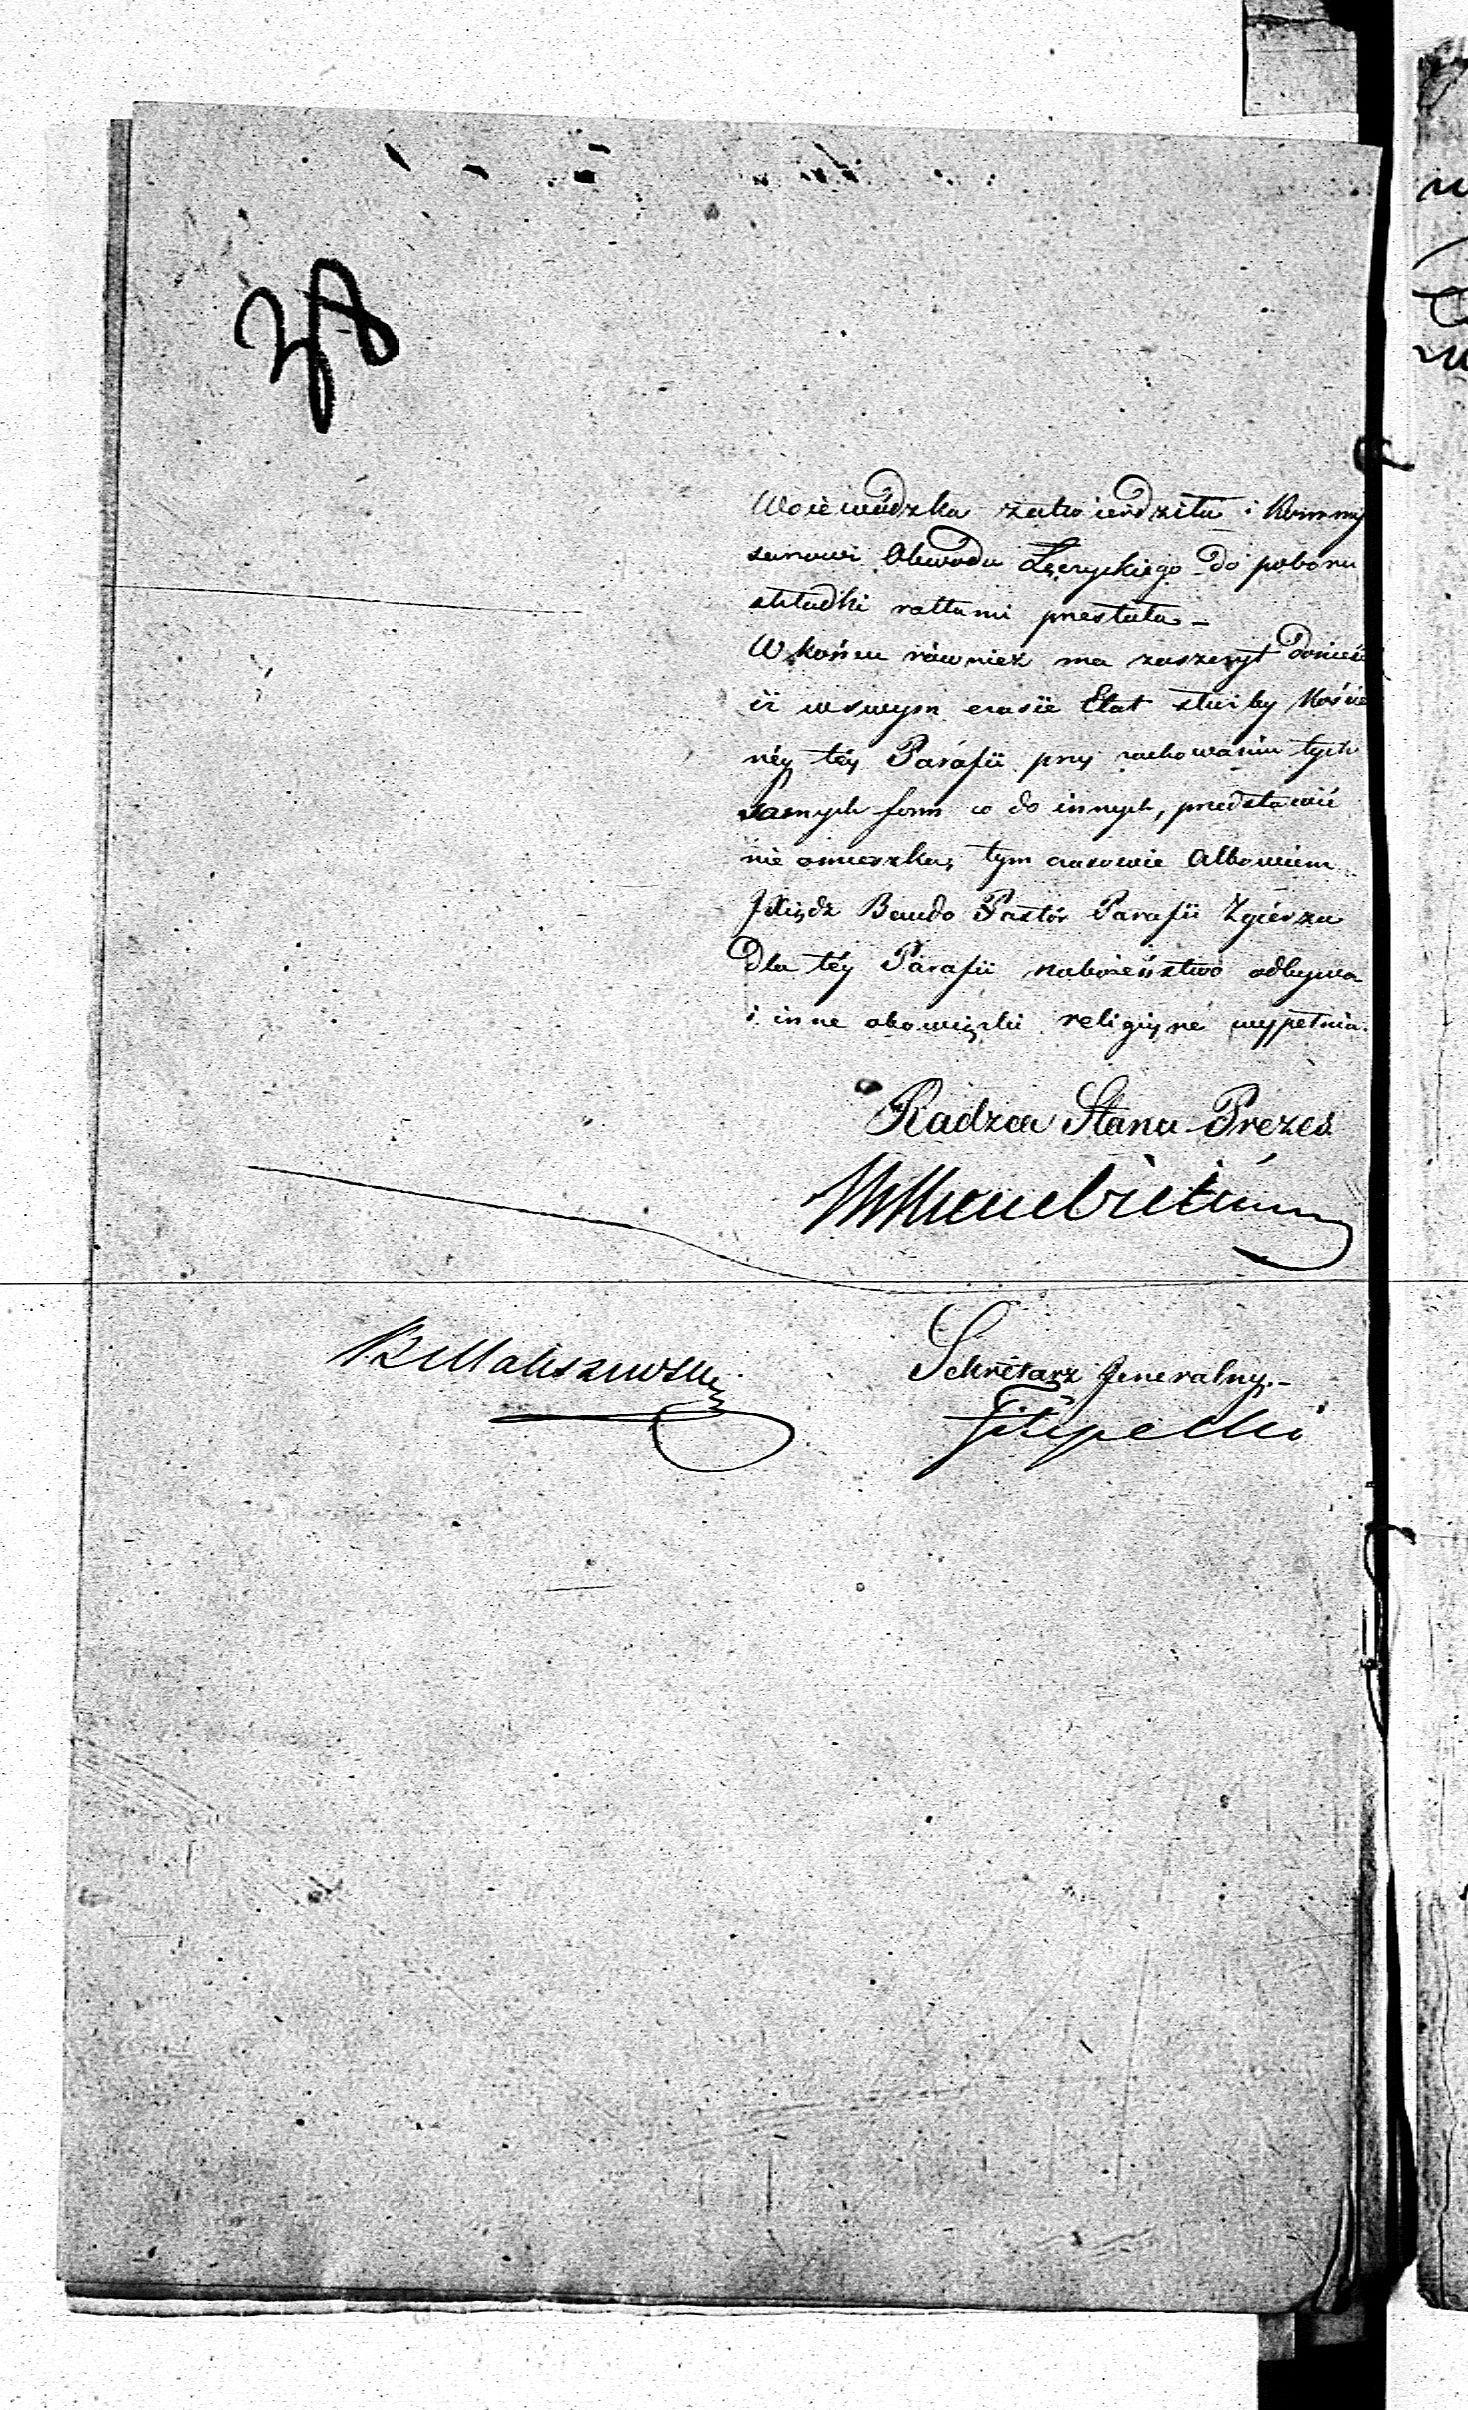 278
Woiewódzka zatwierdziła i Kommis
sarzowi Obwodu Łęczyckiego do poboru
składki rattami przesłała –
W końcu również ma zaszczyt donieść
iż w swym czasie Etat służby Kościel
néy téy Parafii przy zachowaniu tych
samych form co do innych, przedstawić
nie omieszka, tym czasowie Albowiem
Xiądz Bando Pastór Parafii Zgierza
dla téy Parafii nabożeństwo odbywa
i inne obowiązki religiyne wypełnia.
Radzca Stanu Prezes
Sekretarz Jeneralny. –
Filipecki